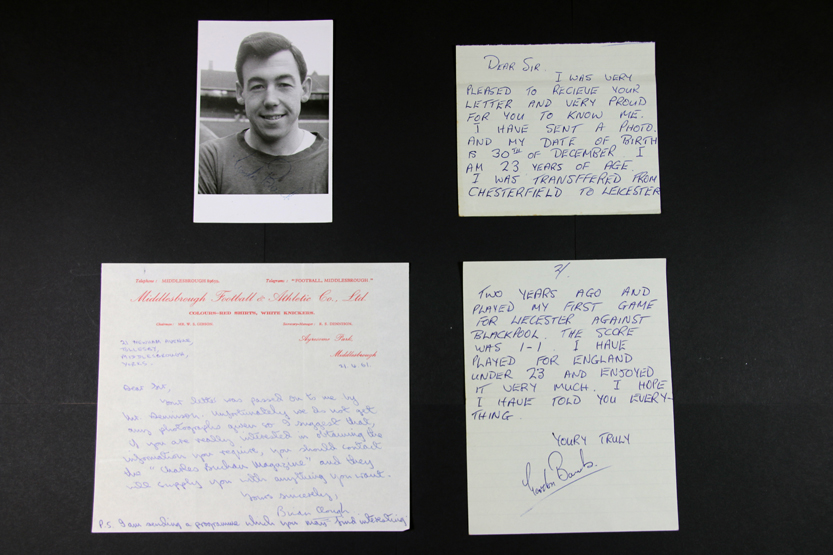 DEAR SIR.
I WAS VERY
PLEASED TO RECIEVE YOUR
LETTER AND VERY PROUD
FOR YOU TO KNOW ME.
I HAVE SENT A PHOTO.
AND MY DATE OF BIRTH
IS 30TH OF DECEMBER I
AM 23 YEARS OF AGE
I WAS TRANSFFERED FROM
CHESTERFIELD TO LEICESTER
Telephone: MIDDLESBROUGH
Telegrams: "FOOTBALL, MIDDLESBROUGH"
Middlesbrough Football & Athletic Co., Ltd.
COLOURS—RED SHIRTS, WHITE KNICKERS.
Ayresome Park,
Middlesbrough
Dear Sir,
Your letter was passed on to me by
Mr. Dennison. Unfortunately we do not get
any photographs given so I suggest that,
if you are really interested in obtaining the
information you require, you should contact
the " Charles Buchan Magazine" and they
will supply you with anything you want.
Yours sincerely,
Brian Clough
P.S. I am sending a programme which you may find interesting
2/.
TWO YEARS AGO AND
PLAYED MY FIRST GAME
FOR LEICESTER AGAINST
BLACKPOOL. THE SCORE
WAS 1-1. I HAVE
PLAYED FOR ENGLAND
UNDER 23 AND ENJOYED
IT VERY MUCH. I HOPE
I HAVE TOLD YOU EVERY-
THING.
YOURY TRULY
Gordon Banks.